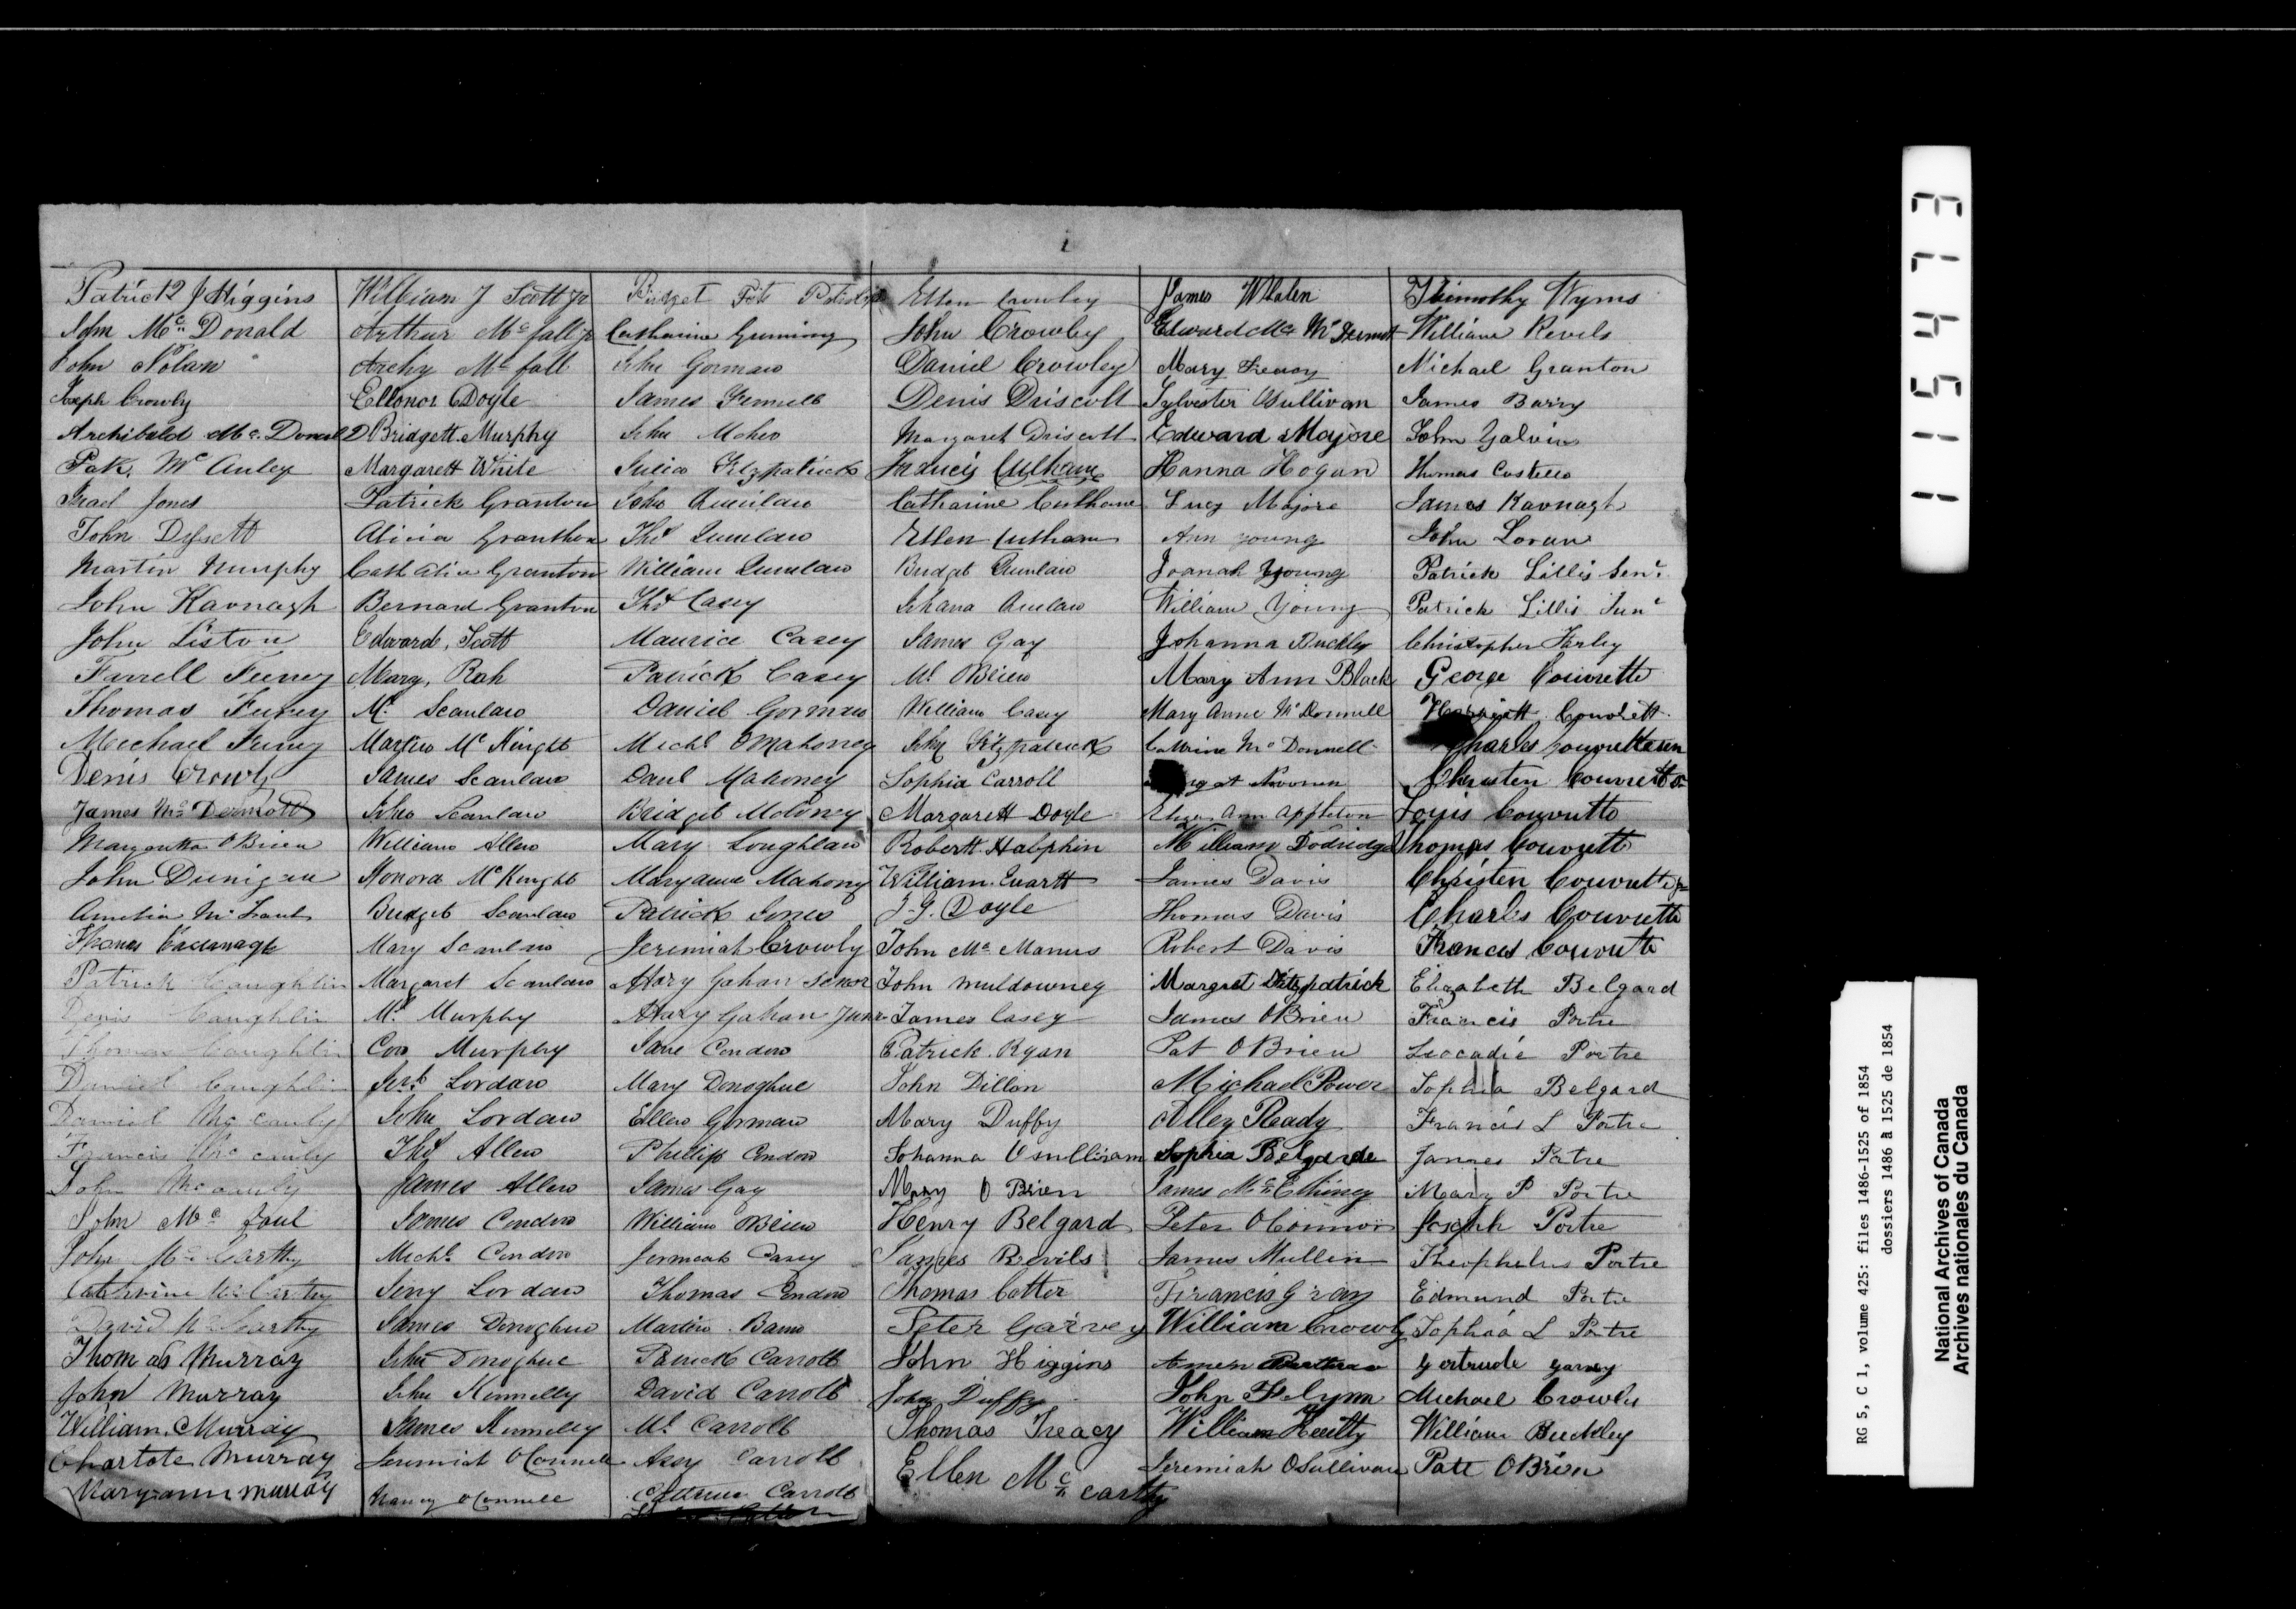 Patrick J Higgins
John Mc Donald
John Nolan
Joseph Crowly
Archibald Mc. Donald
Pak. Mc Auley
Jones
John
Martin Murphy
John Kavnagh
John Liston
Farrell Feeney
Thomas Feeney
Michael Feeney
Denis Crowly
James Mc Dermott
Margartta OBrien
John Dunigan
Amelia Mc
Thomas Cavanagh
Patrick Caughlin
Denis Caughlin
Thomas Caughlin
Daniel Caughlin
Daniel Mc cauly
Francis Mc cauly
John Mc cauly
John Mc faul
John Mc Carthy
Cathrine Mc Carthy
David Mc Carthy
Thomas Murray
John Murray
William Murray
Charlote Murray
Maryann Murray
William J Scott Jr
Arthur Mc fall jr
Archy Mc fall
Ellonor Doyle
Bridgett Murphy
Margarett White
Patrick Granton
Alicia Granthon
Granton
Bernard Granton
Edward Scott
Mary, Rah
Ml Scanlan
Martin Mc Knight
James Scanlan
John Scanlan
William Allen
Honora Mc Knight
Bridget Scanlan
Mary Scanlan
Margaret Scanlan
Ml Murphy
Con Murphy
Lordan
John Lordan
Thos Allen
James Allen
James Condon
Michl Condon
Jerry Lordan
James Donoghue
John Donoghue
John Kennelly
James Kennelly
Jeremiah OConnell
Nancy OConnell
Bridget
Catharine
John Gorman
James
John Meher
Julia Fitzpatrick
John Quinlan
Thos Quinlan
William Quinlan
Thos Casey
Maurice Casey
Patrick Casey
Daniel Gorman
Michl OMahoney
Danl Mahoney
Bridget Moloney
Mary Loughlan
Maryanne Mahony
Patrick Jones
Jeremiah Crowly
Mary Gahan Senor
Mary Gahan Junr
Jane Condon
Mary Donoghue
Ellen Gorman
Phillip Condon
James Gay
William OBrien
Jermeah Casey
Thomas Condon
Martin
Patrick Carroll
David Carroll
Ml Carroll
Carroll
Catrine Carroll
Ellen Crowley
John Crowley
Daniel Crowley
Denis Driscoll
Margaret Driscoll
Francis Culhane
Catharine Culhane
Ellen Culhane
Bridget Quinlan
Johana Quinlan
James Gay
Ml OBrien
William Casey
John Fitzpatrick
Sophia Carroll
Margarett Doyle
Robertt Halphin
William. Evartt
J. G. Doyle
John Mc Manus
John Muldowney
James Casey
Patrick. Ryan
John Dillon
Mary Duffy
Johanna Osulliram
Mary O Brien
Henry Belgard
James Revils
Thomas Cotter
Peter Garvey
John Higgins
John Duffy
Thomas Treacy
Ellen Mc carthy
James Whalen
Edward Mc Dermot
Mary Treacy
Sylvester OSullivan
Edward Majore
Hanna Hogan
Lucy Majore
Ann young
Joanah Young
William Young
Johanna Buckley
Mary Ann Black
Mary Anne Mc Donnell
Catrine Mc Donnell
Noonan
Eliza Ann Appleton
William Dodridge
James Davis
Thomas Davis
Robert Davis
Margret Fitzpatrick
James OBrien
Pat OBrien
Michael Power
Alley Ready
Sophia Belgarde
James Mc Elhiney
Peter OConnor
James Mullin
Francis Gray
William Crowly
John Flynn
William
Jeremiah OSullivan
Thimothy Wyms
William Revels
Michael Granton
James Barry
John Galvin
Thomas Costello
James Kavnagh
John Loran
Patrick Lillis Senr
Patrick Lillis Junr
Christopher Farley
George Couvrette
Couvrett
Charles Couvrette sen
Christen Couvrette Sr
Louis Couvrette
Thomas Couvrett
Christen Couvrette Jr
Charles Couvrette
Frances Couvrette
Elizabeth Belgard
Francis Portre
Leocadie Portre
Sophia Belgard
Francis L Portre
James Portre
Mary P Portre
Joseph Portre
Theophelus Portre
Edmund Portre
Sophia L Portre
Gertrude Garvey
Michael Crowley
William Buckley
Patt OBrien
115473
RG 5, C 1, volume 425: files 1486-1525 of 1854
dossiers 1486 à 1525 de 1854
National Archives of Canada
Archives nationales du Canada